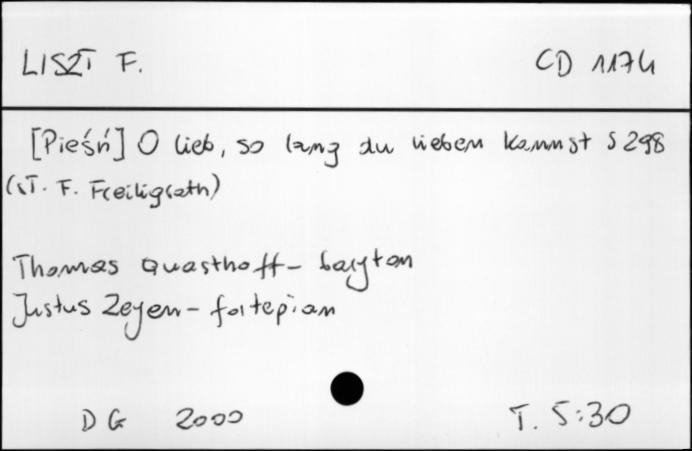 LISZT F. CD 1174
[Pieśń] O lieb, so lang du lieben kannst S 298
(sł. F. Freiligrath)
Thomas Quasthoff - baryton
Justus Zeyen - fortepian
DG 2000 T. 5:30